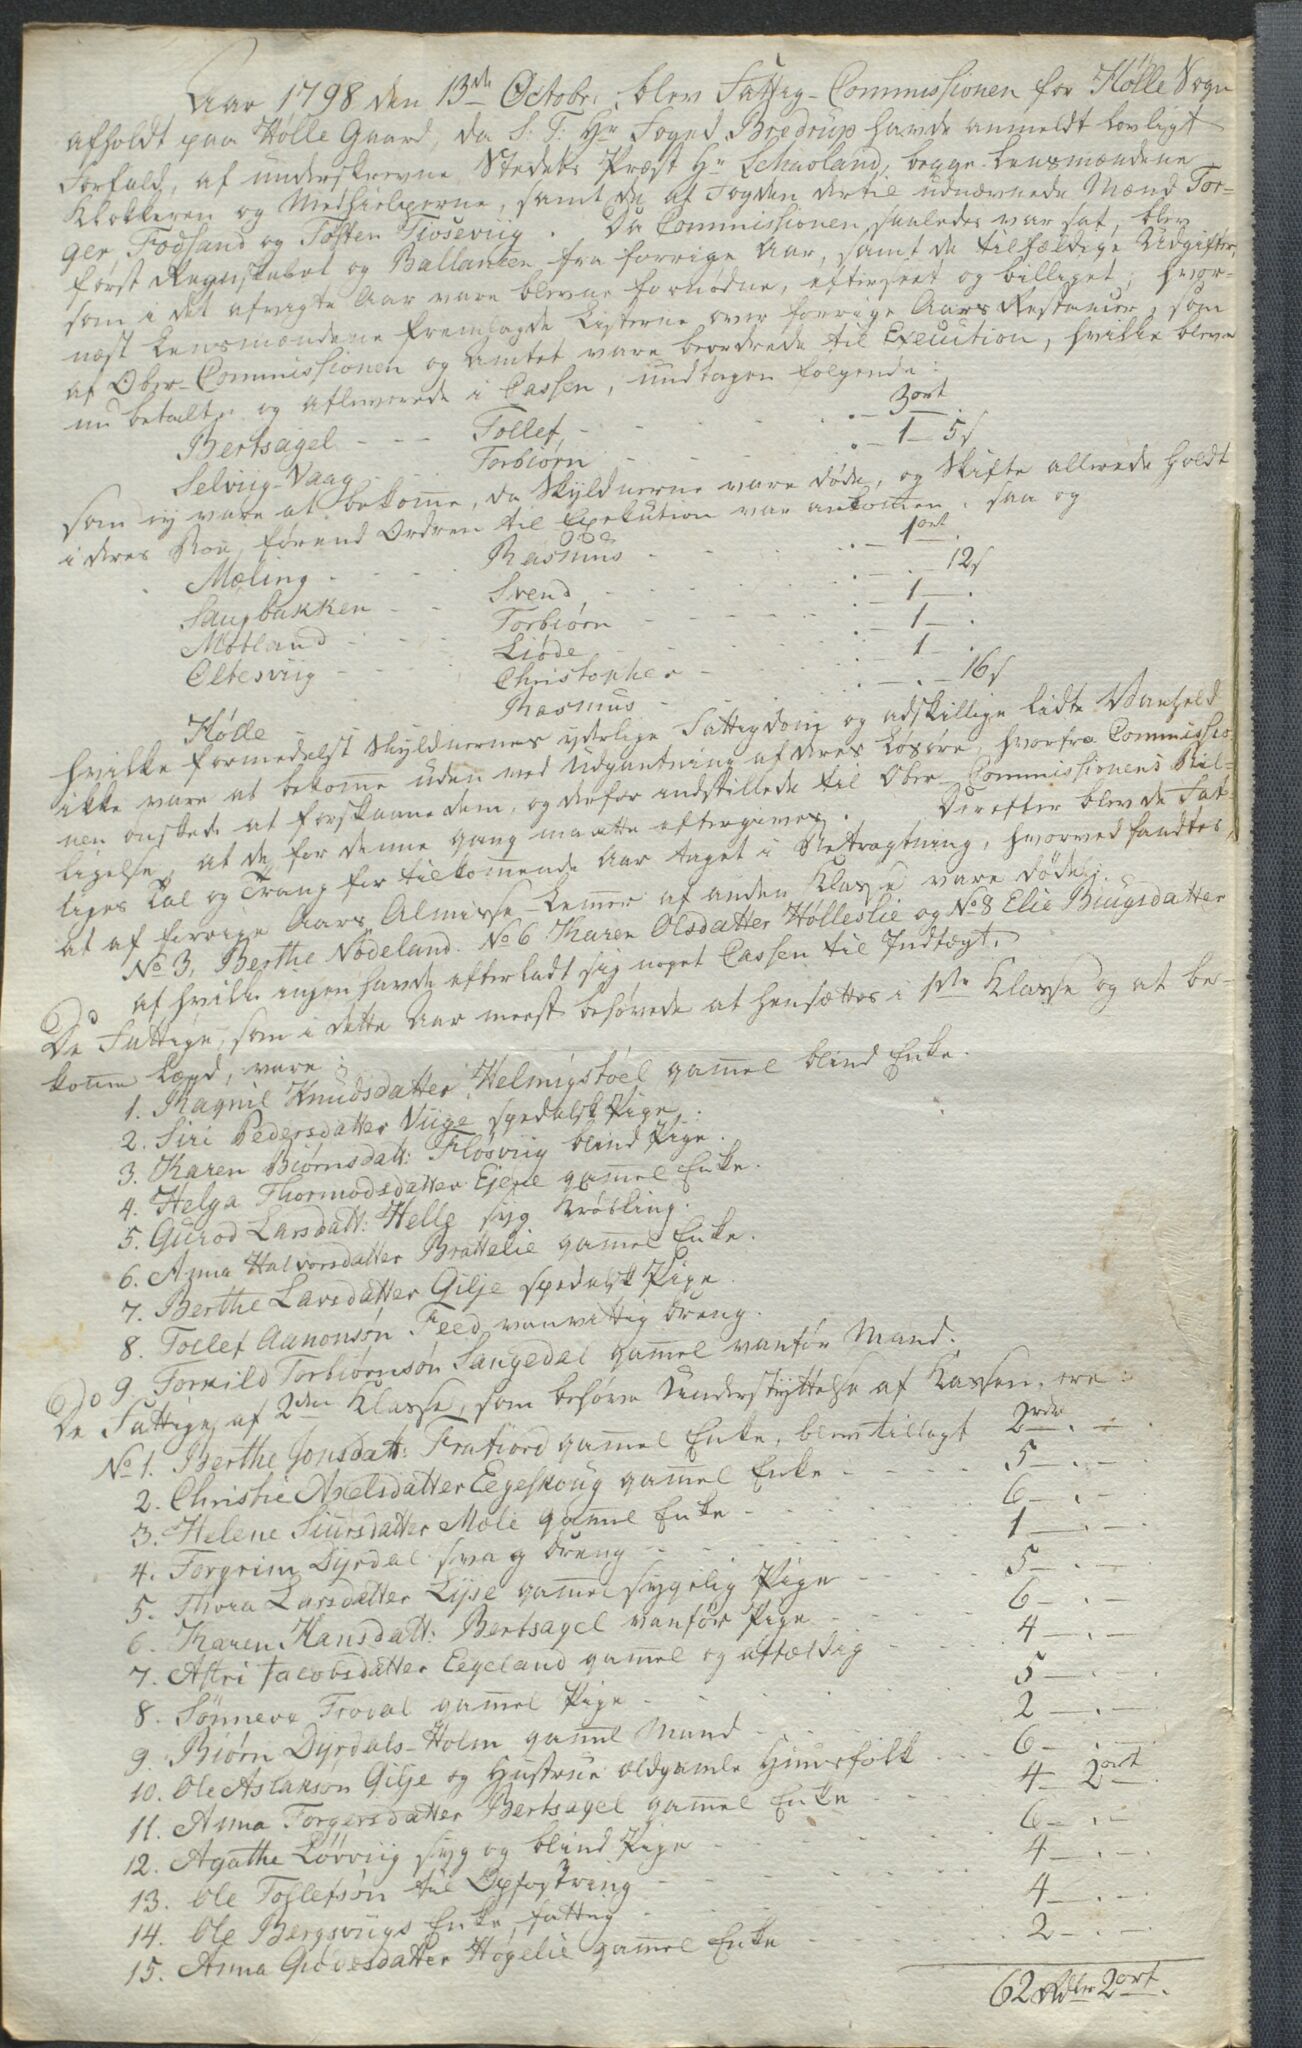 Aar 1798 den 13de Octobr: blev Fattig-Commissionen for Hølle Sogn
afholdt paa Hølle Gaard da S: T: Hr Foged Bredrup havde anmeldt Lovligt
Forfald, af underskrevne Stedets Præst Hr Schaoland, begge Lensmændene
Klokkeren og Medhielperne, samt de af Fogden dertil udnævnede Mænd Tor-
ger Fodsand og Tosten Tioseviig. Da Commissionen saaledes var sat, blev
først Regnskabet og Ballancen fra forrige Aar, samt de tilfældige Udgifter,
som i det afvigte Aar vare blevne fornødne, efterseet og billiget; hvor-
næst Lensmændene fremlagde Listerne over forrige Aars Restancer, som
af Ober-Commissionen og Amtet vare beordrede til Execution, hvilke bleve
nu betalte og afleverede i Cassen, undtagen følgende:
Bertsagel - - - Tollef, - - - . — 3ort —.
Selviig-Vaag - - Torbiørn - - - . — 1 — 5s
som ey vare at bekomme, da Skyldnerne vare døde, og Skifte allerede holdt
i deres Boe, førend Ordren til Exekution var ankommen. saa og
Mæling - - - Rasmus - - - . — 1ort —.
Saugbakken - - Svend - - - . — . — 12s
Motland - - - Torbiørn - - - . — 1 — .
Eltesviig - - - Liøde - - - . — 1 — .
Christopher - - - . — 1 — .
Hølle - - - Rasmus - - - . — . — 16s
hvilke formedelst Skyldnernes yderlige Fattigdom og adskillige lidte Vanheld
ikke vare at bekomme uden ved Udpantning af deres Løsøre, hvorfra Commissio-
nen ønskede at forskaane dem, og derfor indstillede til Ober-Commissionens Bil-
ligelse, at de for denne gang maatte eftergives. Derefter blev de Fat-
tiges Tal og Trang for tilkommende Aar taget i Betragtning, hvorved fandtes,
at af forrige Aars Almisse-Lemmer af anden Klasse vare døde:
No 3, Berthe Nødeland. No 6 Karen Olsdatter Hølleslie og No 8 Elie Biugsdatter
af hvilke ingen havde efterladt sig noget Cassen til Indtægt.
De Fattige, som i dette Aar meest behøvede at hensættes i 1ste Klasse og at be-
komme Lægd, vare:
1. Ragnil Knudsdatter Helmigstøel gammel blind Enke.
2. Siri Pedersdatter Viige spedalsk Pige.
3. Karen Biørnsdatt: Fløsviig blind Pige.
4. Helga Thormodsdatter Ejene gammel Enke.
5. Gurod Larsdatt: Helle syg Krøbling.
6. Anna Halvorsdatter Brattelie gammel Enke.
7. Berthe Larsdatter Gilje spedalsk Pige.
8. Tollef Aanonsøn Feed vanvittig Dreng.
9. Torkild Torbiørnsøn Saugedal gammel vanfør Mand.
De Fattige af 2den Klasse, som behøve Understyttelse af Kassen, ere:
No 1. Berthe Jonsdatt: Frafiord gammel Enke, blev tillagt 2rdr — . — .
2. Christie Axelsdatter Eegeskoug gammel Enke - - - 5 — . —
3. Helene Siursdatter Mæle gammel Enke - - - 6 — . —
4. Torgrim Dyrdal svag Dreng - - - 1 — . —
5. Thora Larsdatter Lyse gammel sygelig Pige - - - 5 — . —
6. Karen Hansdatt: Bertsagel vanfør Pige - - - 6 — . —
7. Astri Jacobsdatter Eegeland gammel og affældig - - - 4 — . —
8. Sønneva Frøval gammel Pige - - - 5 — . —
9. Biørn Dyrdals-Holm gammel Mand - - - 2 — . —
10. Ole Aslaksøn Gilje og Hustrue ældgamle Huusfolk - - - 6 — . —
11. Anna Torgersdatter Bertsagel gammel Enke - - - 4 — 2ort —.
12. Agathe Løvviig syg og blind Pige - - - 6 — . —
13. Ole Tollefsøn til Opfostring - - - 4 — . —
14. Ole Bergsviigs Enke, fattig - - - 4 — . —
15. Anna Giødesdatter Høgelie gammel Enke - - - 2 — . —
62 Rdlr 2ort —.